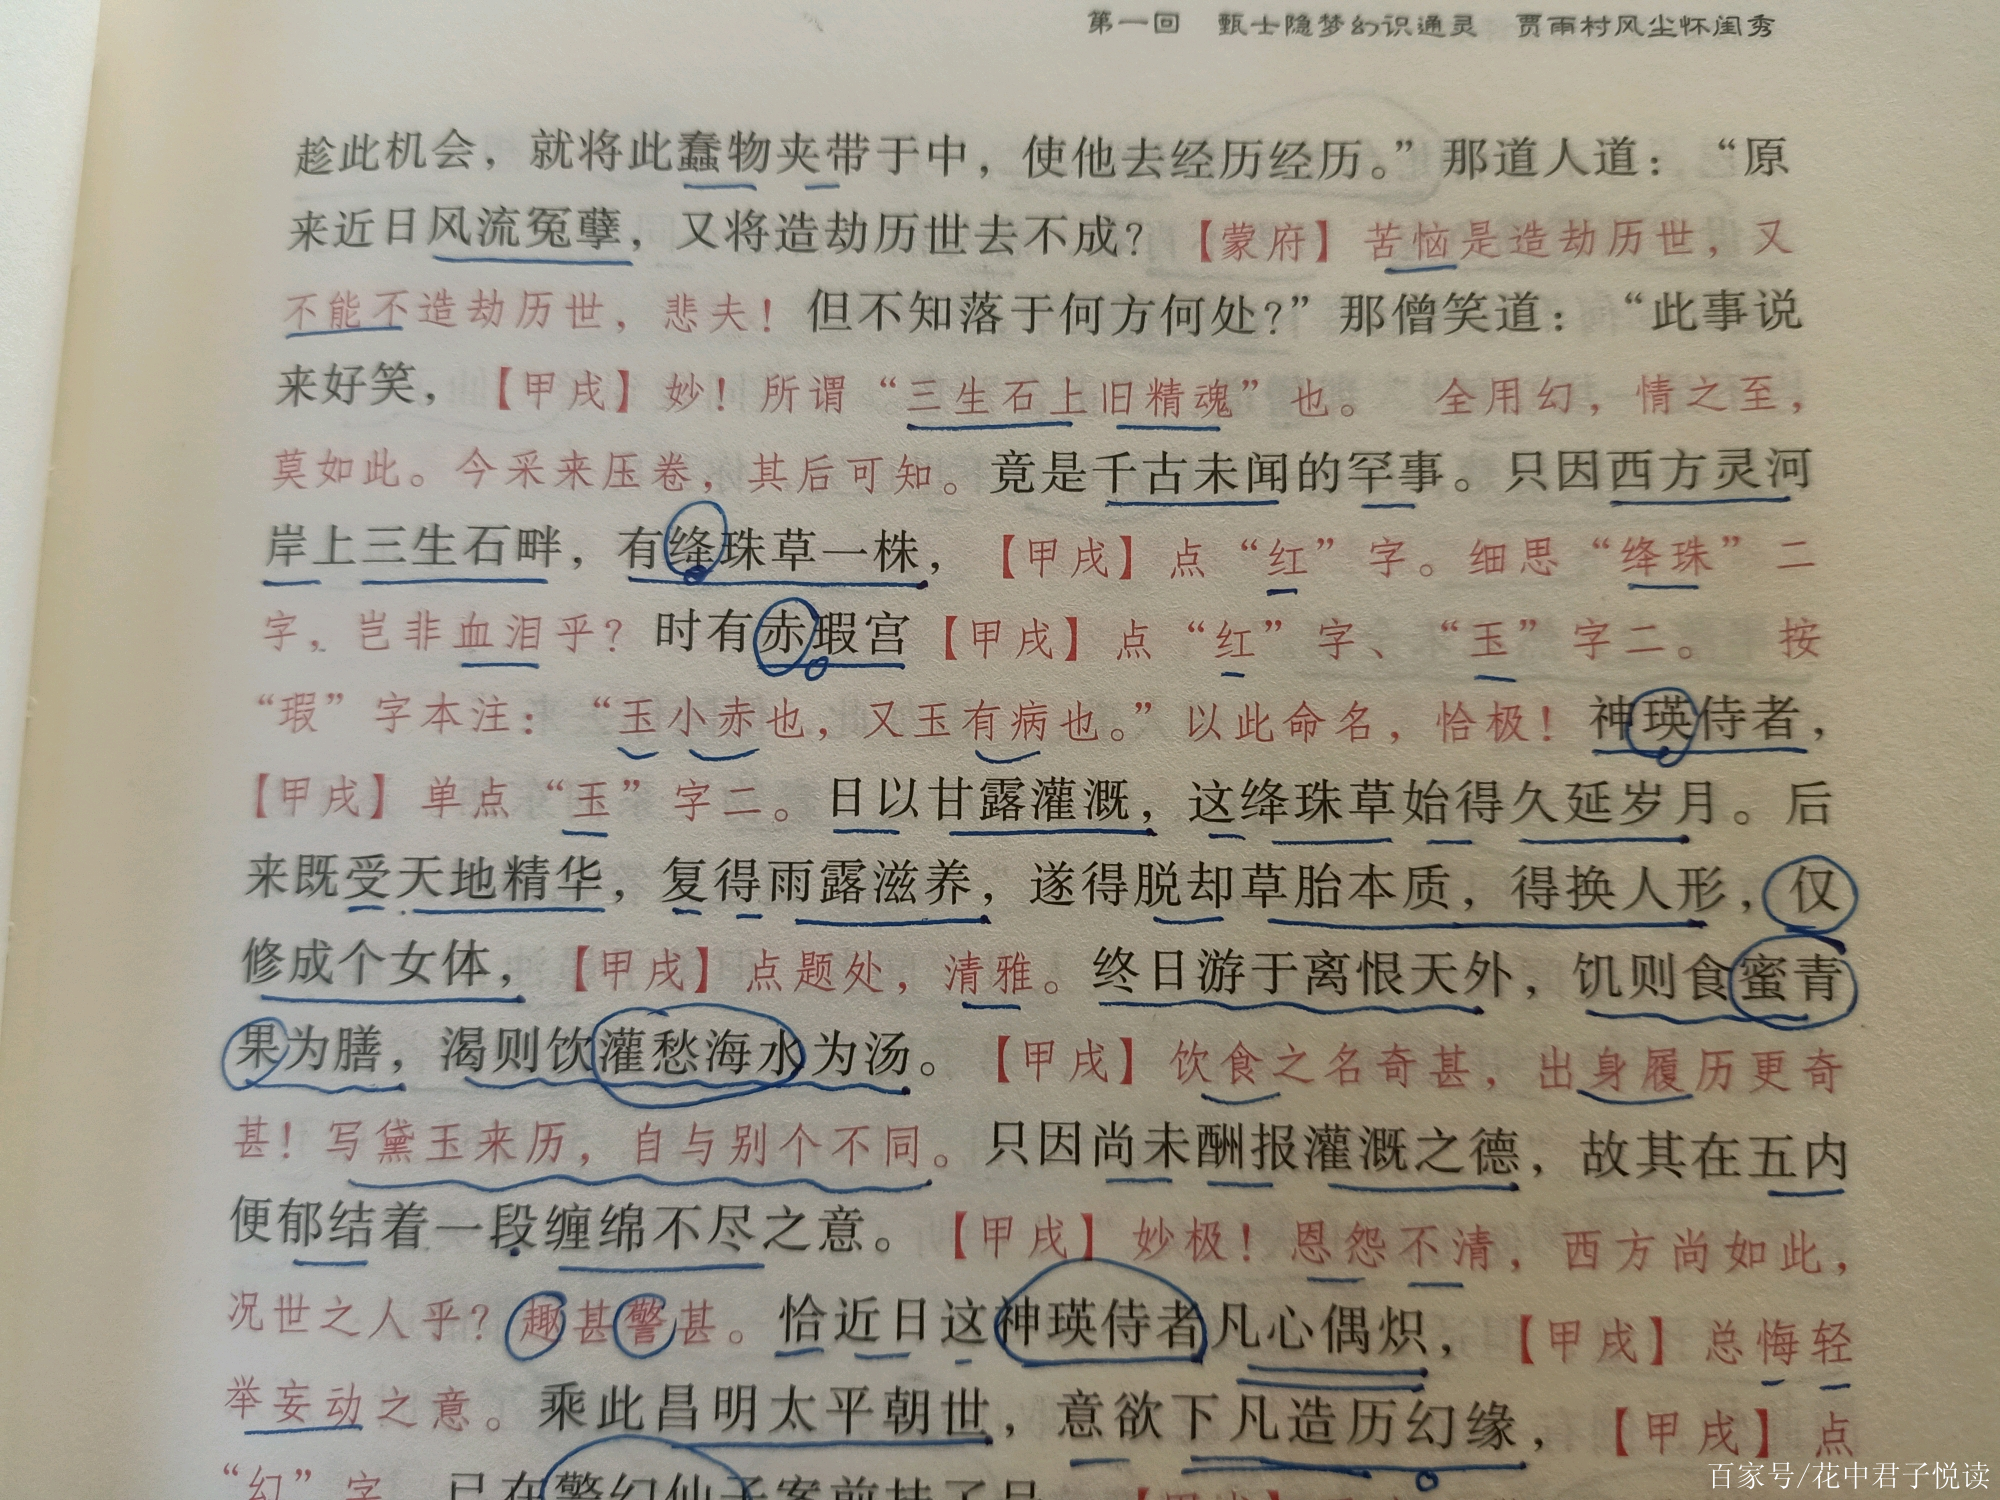 第一回 甄士隐梦幻识通灵 贾雨村风尘怀闺秀
趁此机会，就将此蠢物夹带于中，使他去经历经历。”那道人道：“原
来近日风流冤孽，又将造劫历世去不成？【蒙府】苦恼是造劫历世，又
不能不造劫历世，悲夫！但不知落于何方何处？”那僧笑道：“此事说
来好笑，【甲戌】妙！所谓“三生石上旧精魂”也。 全用幻，情之至，
莫如此。今采来压卷，其后可知。竟是千古未闻的罕事。只因西方灵河
岸上三生石畔，有绛珠草一株，【甲戌】点“红”字。细思“绛珠”二
字，岂非血泪乎？时有赤瑕宫【甲戌】点“红”字、“玉”字二。 按
“瑕”字本注：“玉小赤也，又玉有病也。”以此命名，恰极！神瑛侍者，
【甲戌】单点“玉”字二。日以甘露灌溉，这绛珠草始得久延岁月。后
来既受天地精华，复得雨露滋养，遂得脱却草胎本质，得换人形，仅
修成个女体，【甲戌】点题处，清雅。终日游于离恨天外，饥则食蜜青
果为膳，渴则饮灌愁海水为汤。【甲戌】饮食之名奇甚，出身履历更奇
甚！写黛玉来历，自与别个不同。只因尚未酬报灌溉之德，故其在五内
便郁结着一段缠绵不尽之意。【甲戌】妙极！恩怨不清，西方尚如此，
况世之人乎？趣甚警甚。恰近日这神瑛侍者凡心偶炽，【甲戌】总悔轻
举妄动之意。乘此昌明太平朝世，意欲下凡造历幻缘，【甲戌】点
“幻”字。已在警幻仙子案前挂了号。【甲戌】
百家号/花中君子悦读